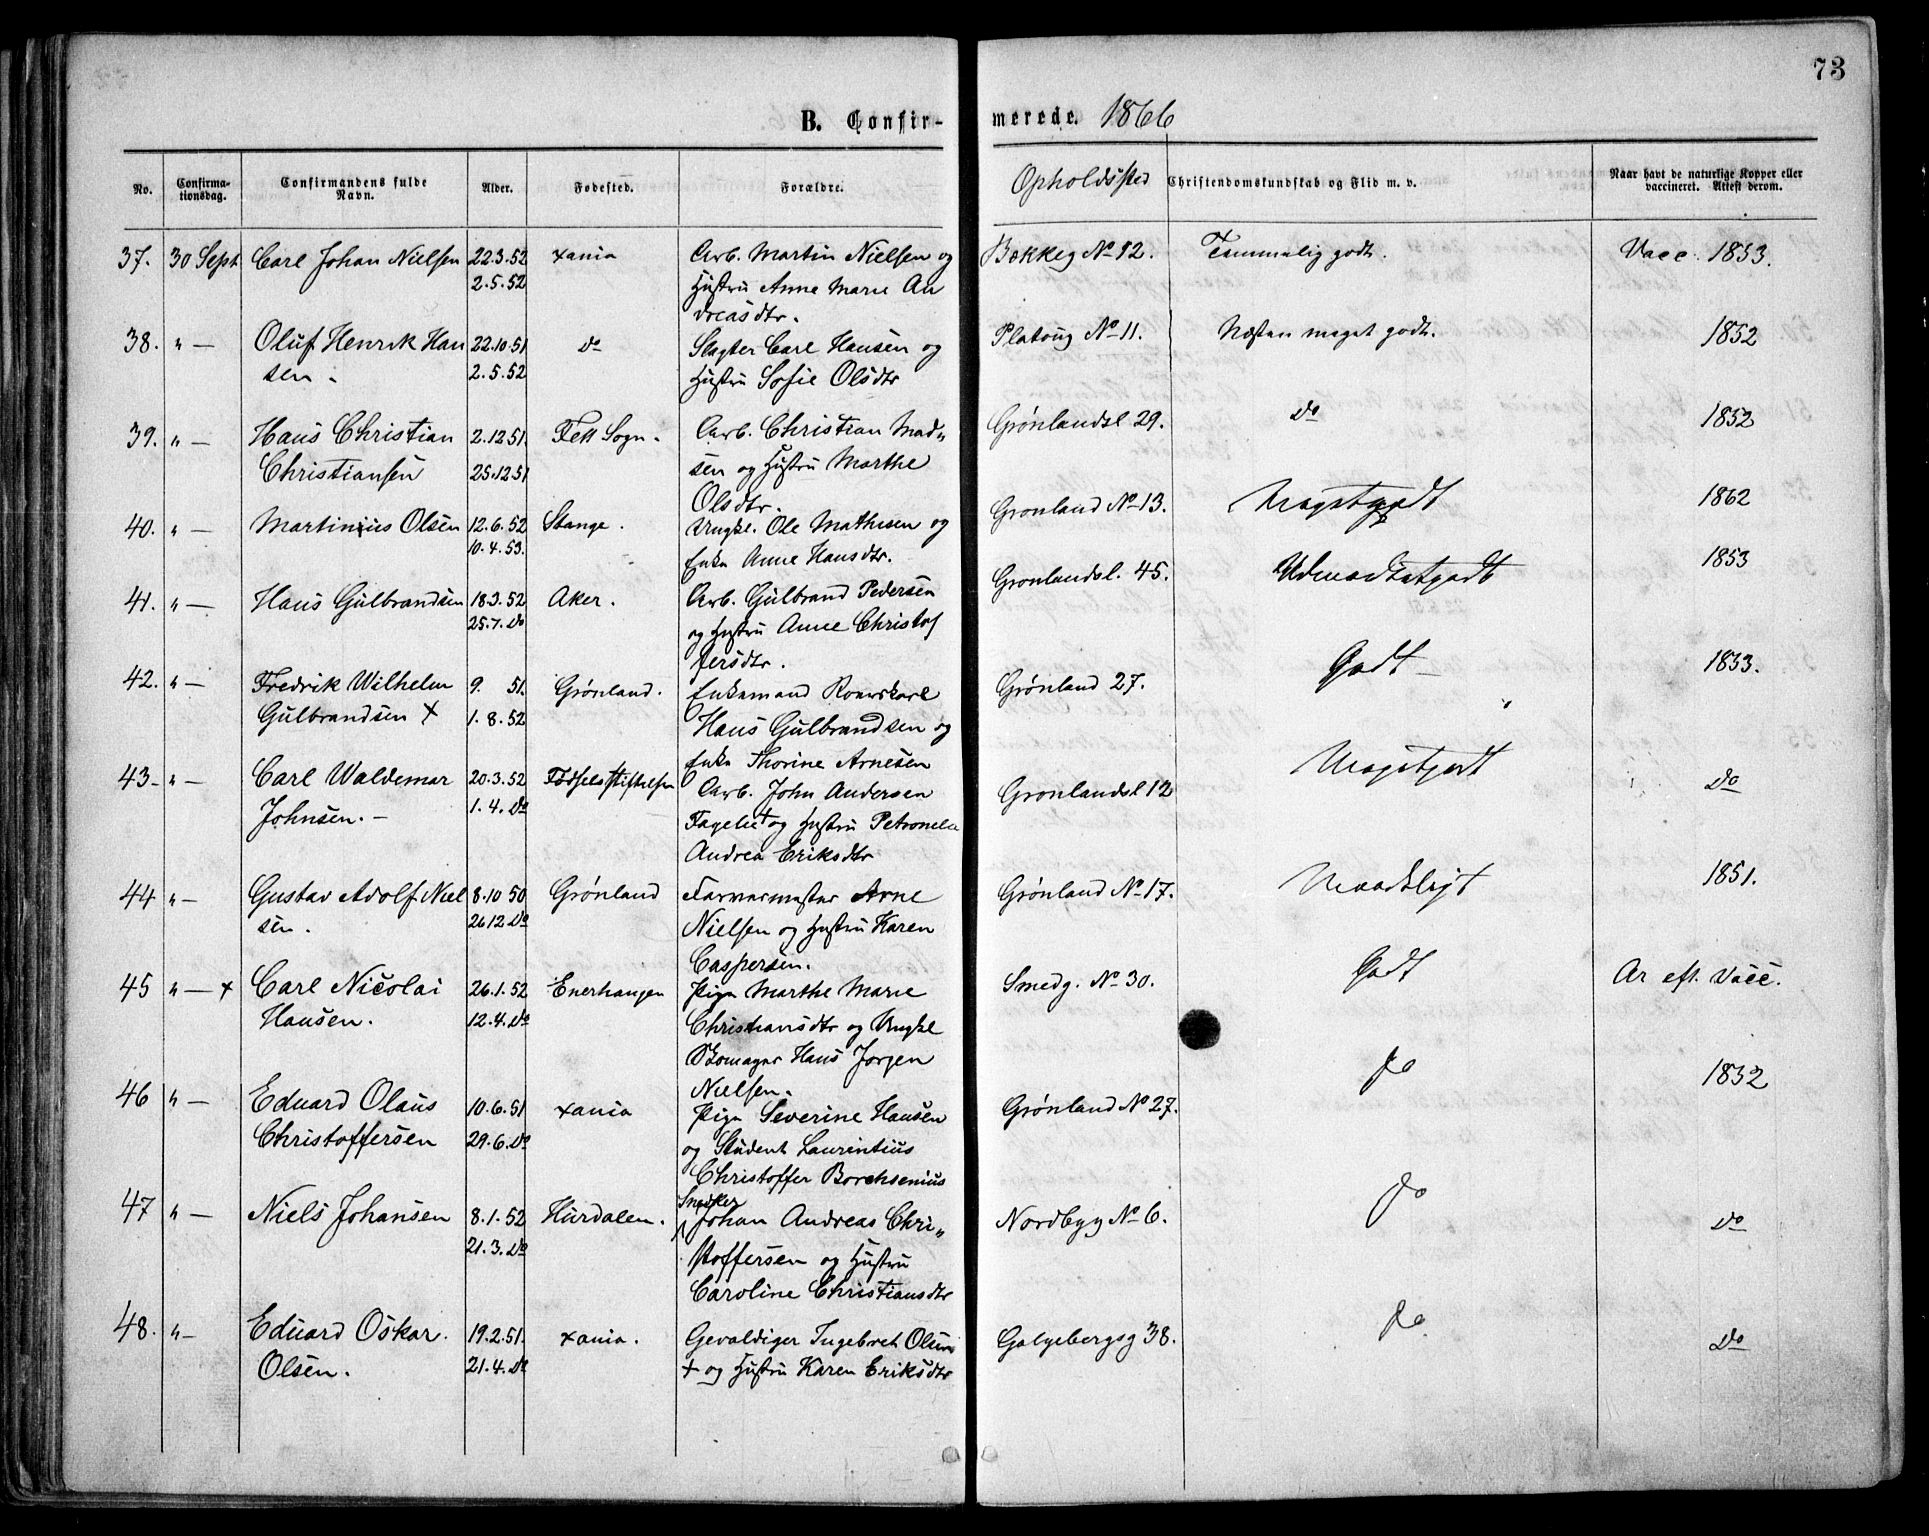 73
B. Confirmerede. 1866
No. Confirmationsdag. Confirmandens fulde Navn. Alder. Fødested. Forældre. Opholdssted Christendomskundskab og Flid m. v. Naar havt de naturlige Kopper eller vaccineret. Attest derom.
37. 30 Sept Carl Johan Nielsen 22.3.52 xania Arb. Martin Nielsen og Bekkeg No 12. Temmelig godt. Vacc. 1853.
2.5.52 Hustru Anne Marie An
dreasdtr.
38. " — Oluf Henrik Han 22.10.51 do Slagter Carl Hansen og Platoug No 11. Næsten meget godt. 1852
sen. 2.5.52 Hustru Sofie Olsdtr
39. " — Hans Christian 2.12 51. Fet Sogn. Arb. Christian Mad„ Grønlandsl 29. do 1852
Christiansen 25.12 51 sen og Hustru Marthe
Olsdtr.
40. " — Martinius Olsen 12.6.52 Stange. Ungkl. Ole Mathisen og Grønland No 13. Megetgodt 1862
10.4.53. Enke Anne Hansdtr.
41. " — Hans Gulbrandsen 18.3.52 Aker. Arb. Gulbrand Pedersen Grønlandsl. 45. Udmærketgodt 1853
25.7. do og Hustru Anne Christof
fersdtr.
42. " — Fredrik Wilhelm 9. 51. Grønland. Enkemand Roerskarl Grønland 27. Godt — 1853.
Gulbrandsen + 1.8.52 Hans Gulbrandsen og
Enke Thorine Arnesen
43 " — Carl Waldemar 20.3.52 Fødselsstiftelsen Arb. John Andersen Grønlandsl 12 Megetgodt do
Johnsen. — 1.4. do Fagelie + og Hustru Petronelle
Andrea Eriksdtr
44 " — Gustav Adolf Niel 8.10 50 Grønland Farvermester Arne Grønland No 17. Maadeligt 1851.
sen. 26 12 do Nielsen og Hustru Karen
Caspersen.
45 " — + Carl Nicolai 26.1.52 Enerhaugen Pige Marthe Marie Smedg. No 30. Godt Ar eft. Vacc.
Hansen. 12.4. do Christiansdtr og Ungkl
Skomager Hans Jørgen
Nielsen.
46 " — Eduard Olaus 10.6.51 xania Pige Severine Hansen Grønland No 27. do 1852
Christoffersen 29.6. do og Student Laurentius
Christoffer Borchsenius
47 " — Niels Johansen 8.1.52 Hurdalen. Snedker Johan Andreas Chri„ Nordbyg No 6. do do
21.3. do stoffersen og Hustru
Caroline Christiansdtr
48. " — Eduard Oskar 19.2.51. xania. Gevaldiger Ingebret Olsen Galgebergsg 38. do do
Olsen. 21.4. do + og Hustru Karen Eriksdtr